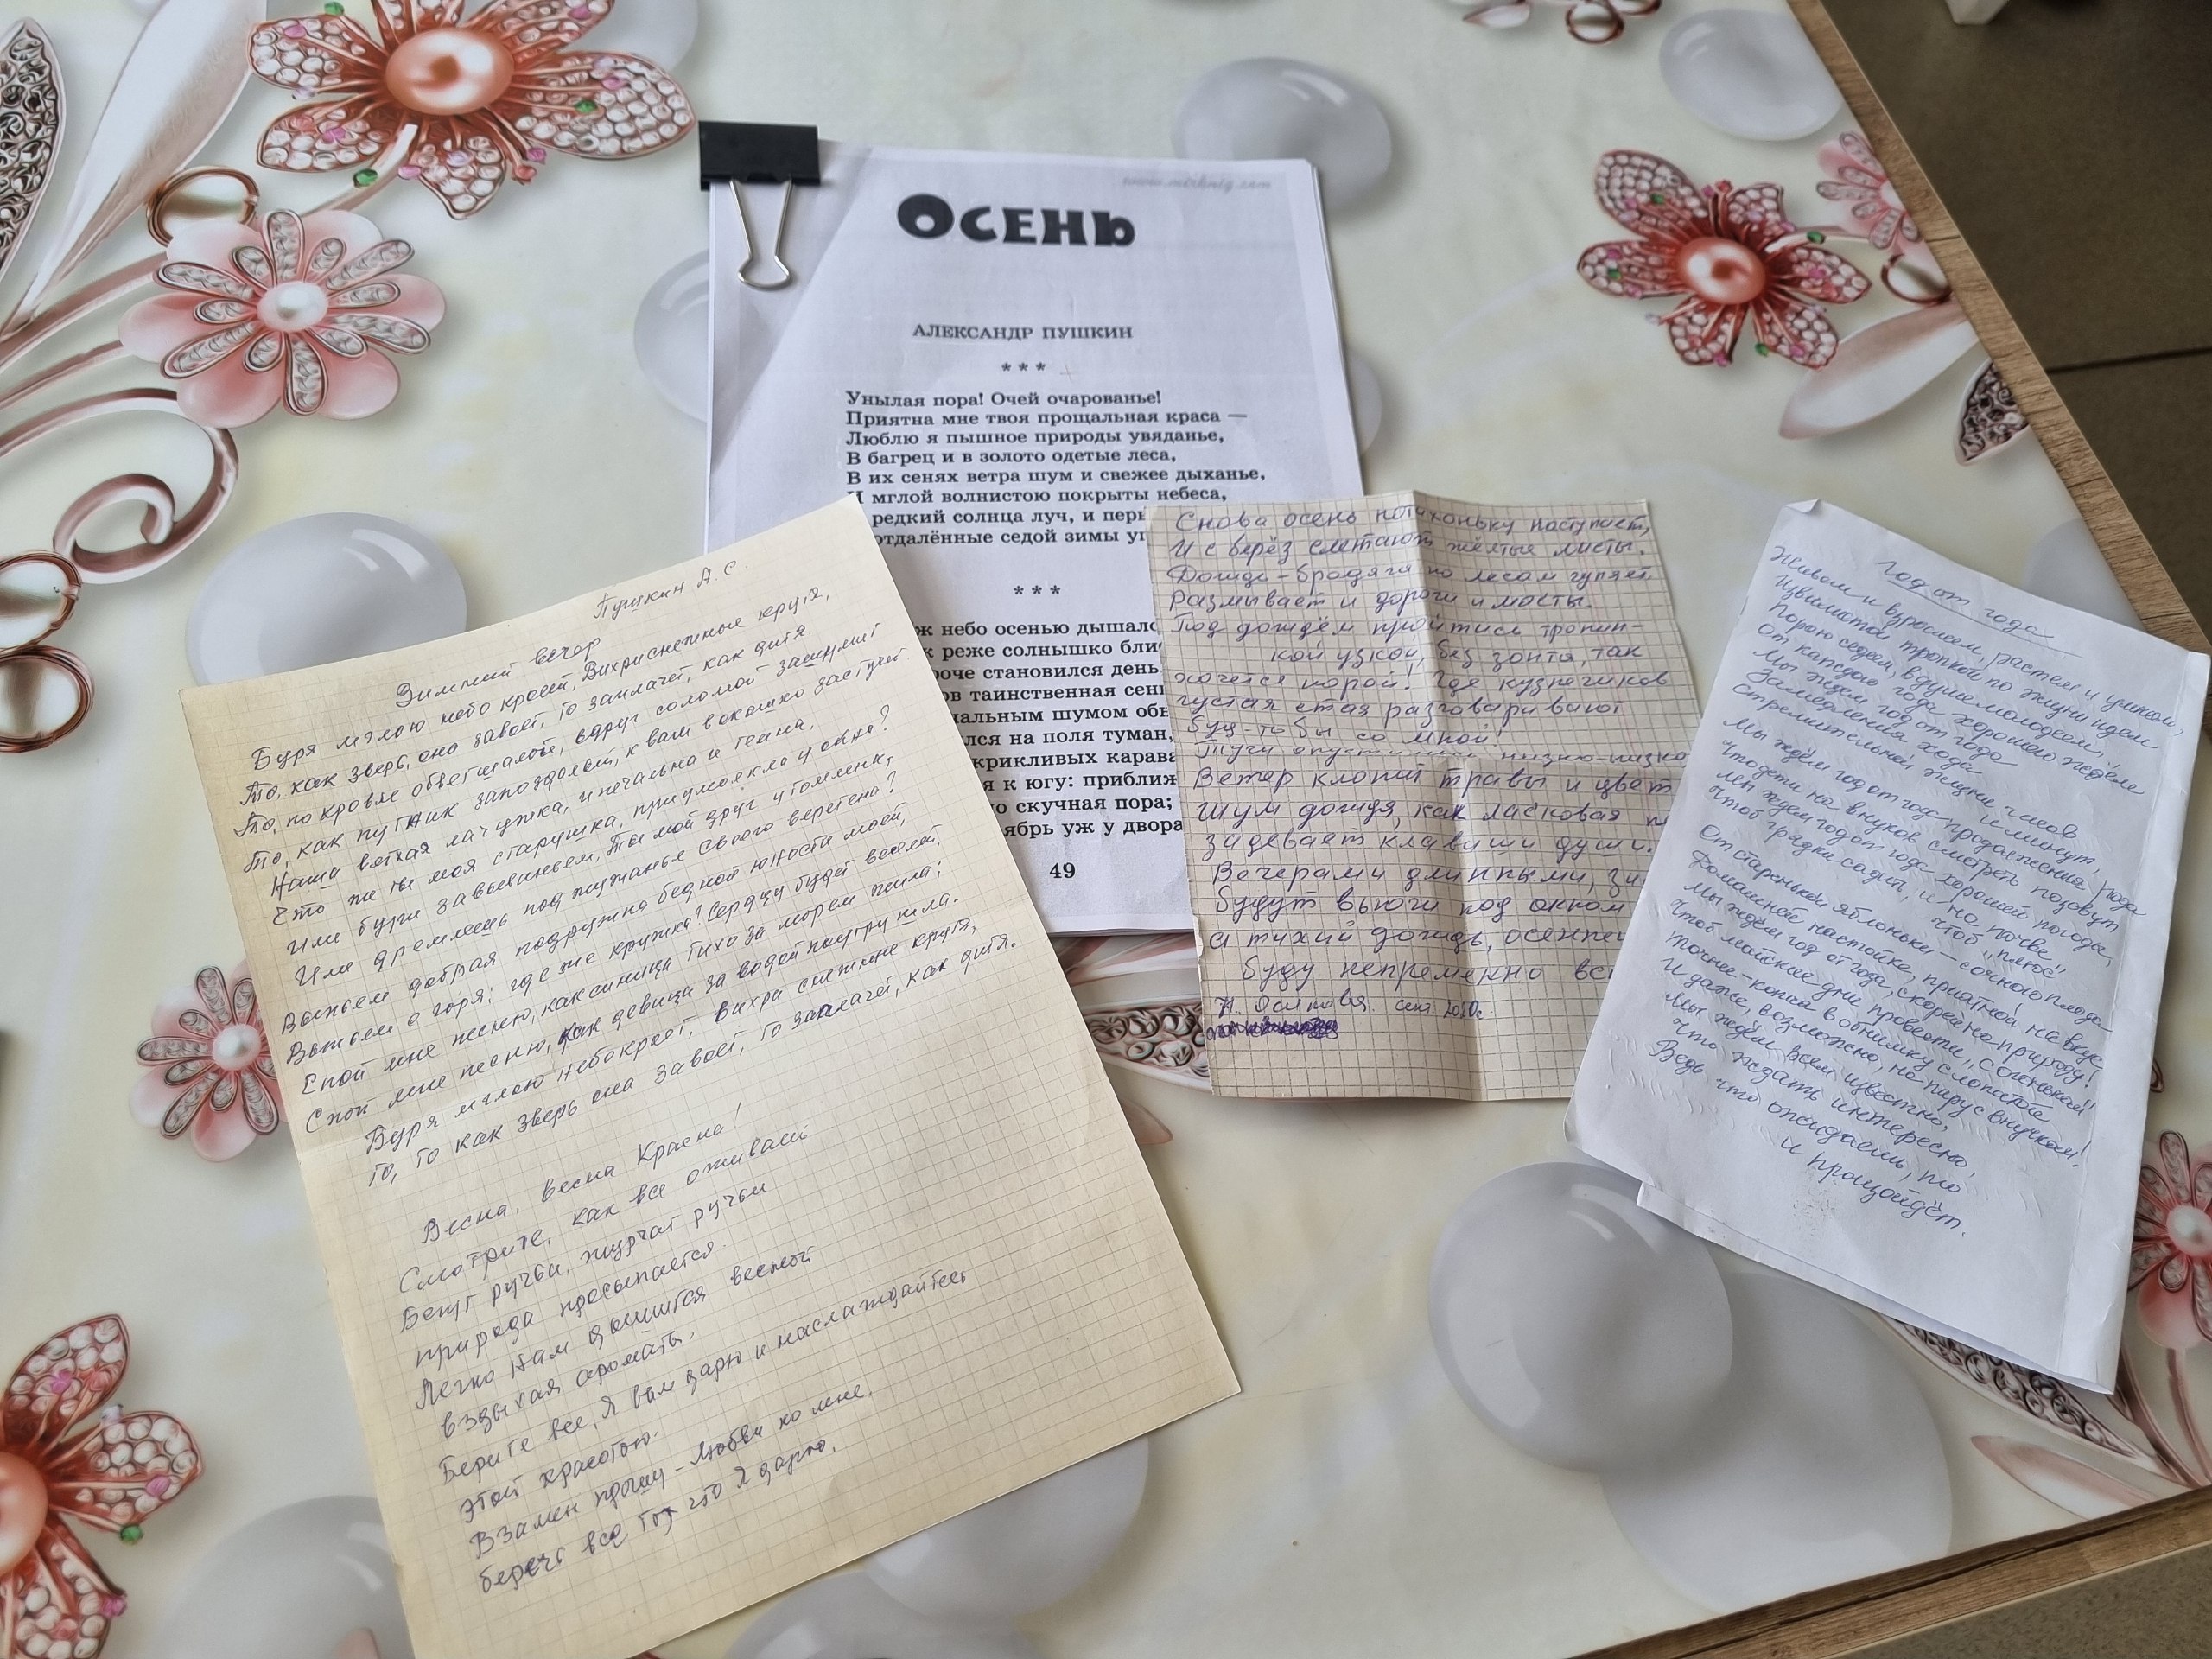 www.mirknig.com
ОСЕНЬ
АЛЕКСАНДР ПУШКИН
* * *
Унылая пора! Очей очарованье!
Приятна мне твоя прощальная краса —
Люблю я пышное природы увяданье,
В багрец и в золото одетые леса,
В их сенях ветра шум и свежее дыханье,
И мглой волнистою покрыты небеса,
редкий солнца луч, и перв
отдалённые седой зимы уг
* * *
ж небо осенью дышало
к реже солнышко бли
роче становился день
ов таинственная сень
чальным шумом обн
лся на поля туман,
крикливых карава
я к югу: приближ
но скучная пора;
ябрь уж у двора
49
Пушкин А.С.
Зимний вечер
Буря мглою небо кроет, Вихри снежные крутя,
То, как зверь, она завоет, То заплачет, как дитя
То, по кровле обветшалой, вдруг соломой зашумит
То, как путник запоздалый, к нам в окошко застучит
Наша ветхая лачужка, и печальна и темна,
Что же ты моя старушка, приумолкла у окна?
Или бури завываньем, Ты мой друг утомлена,
Или дремлешь под жужжанье своего веретена?
Выпьем добрая подружка бедной юности моей,
Выпьем с горя; где же кружка? Сердцу будет веселей,
Спой мне песню, как синица Тихо за морем жила;
Спой мне песню, как девица за водой поутру шла.
Буря мглою небо кроет, вихри снежные крутя,
То, то как зверь она завоет, то заплачет, как дитя.
Весна, весна Красна!
Смотрите, как все оживает
Бегут ручьи, журчат ручьи
природа просыпается.
Легко нам дышится весной
вздыхая ароматы.
Берите все, Я вам дарю и наслаждайтесь
этой красотою.
Взамен прошу - Любви ко мне.
беречь все то, что Я дарю.
Снова осень потихоньку наступает,
И с берёз слетают жёлтые листы.
Дождь-бродяга по лесам гуляет
Размывает и дороги и мосты.
Под дождём пройтись тропин-
кой узкой, без зонта, так
хочется порой! Где кузнечиков
густая стая разговаривают
буд-то бы со мной!
Тучи опустились низко-низко
Ветер клонит травы и цвет
Шум дождя, как ласковая
задевает клавиши души.
Вечерами длинными, зи
будут вьюги под окном
а тихий дождь, осенне
буду непременно вс
сент. 2020г.
Год от года
Живём и взрослеем, растем и умнеем,
Извилистой тропкой по жизни идем
Порою седеем, в душе молодеем,
От каждого года хорошего ждём
Мы ждем год от года
Замедления хода
Стремительной жизни часов и минут,
Мы ждём год от года продолжения рода
Что дети на внуков смотреть позовут
Мы ждем год от года хорошей погоды,
Чтоб грядки садить, и на почве чтоб "плюс"
От старенькой яблоньки – сочного плода
Домашней настойке, приятной на вкус
Мы ждём год от года, скорей на природу!
Чтоб майские дни провести "с огоньком"
Точнее-копка в обнимку с лопатой
И даже, возможно, на пару с внучком!
Мы ждём, всем известно,
Что ждать интересно,
Ведь что ожидаешь, то
и произойдёт.